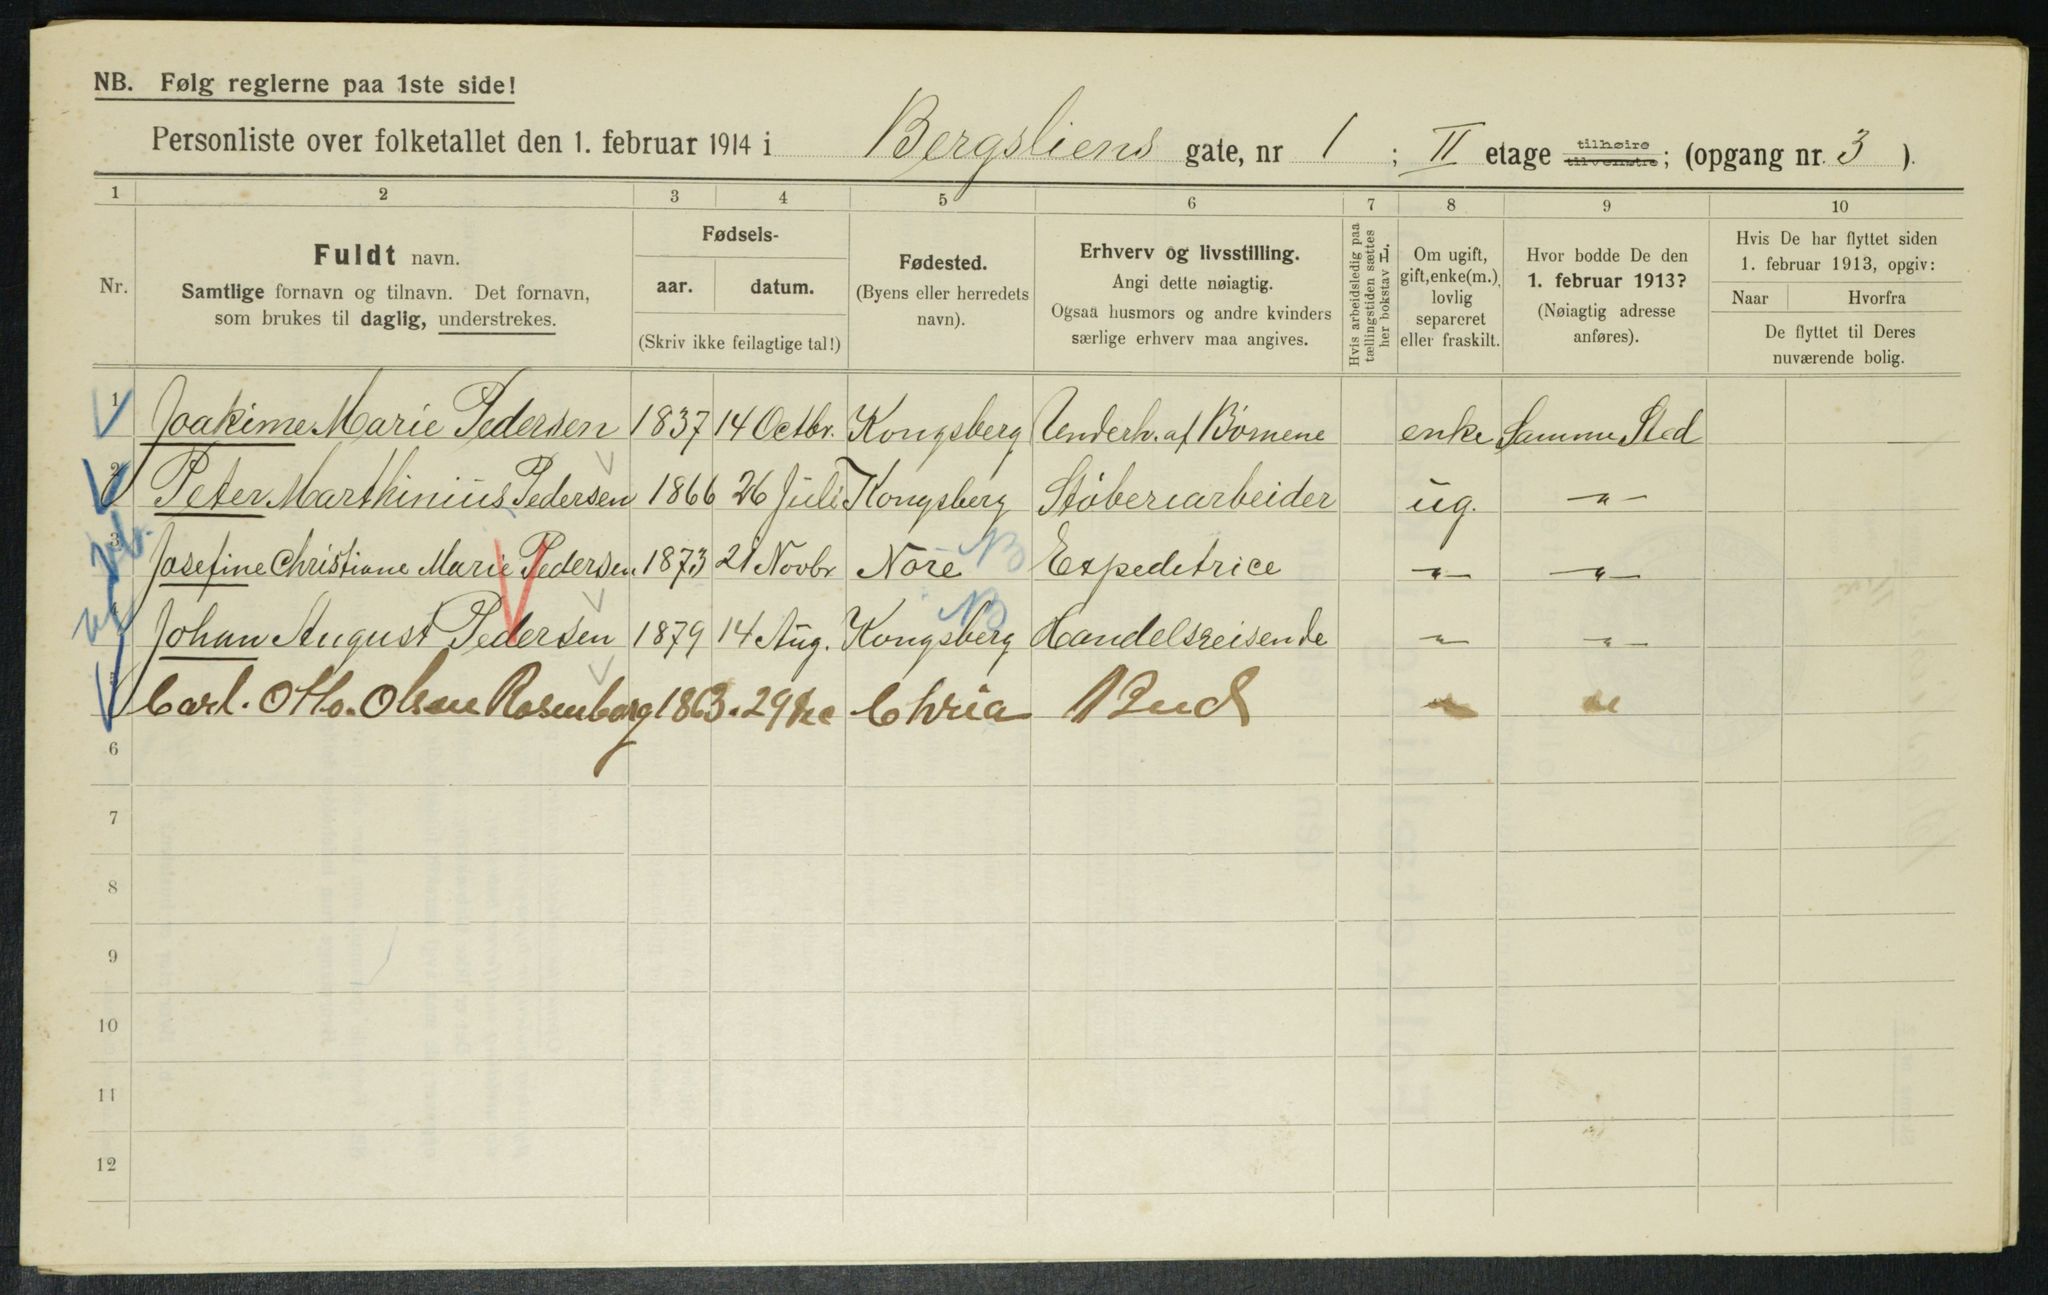 NB. Følg reglerne paa 1ste side!
Personliste over folketallet den 1. februar 1914 i Bergsliens gate, nr 1; II etage tilhøire tilvenstre; (opgang nr. 3).
1 2 3 4 5 6 7 8 9 10
Nr.
Fuldt navn.
Samtlige fornavn og tilnavn. Det fornavn,
som brukes til daglig, understrekes.
Fødsels-
aar. datum.
(Skriv ikke feilagtige tal!)
Fødested.
(Byens eller herredets
navn).
Erhverv og livsstilling.
Angi dette nøiagtig.
Ogsaa husmors og andre kvinders
særlige erhverv maa angives.
Hvis arbeidsledig paa
tællingstiden sættes
her bokstav H.
Om ugift,
gift, enke(m.),
lovlig
separeret
eller fraskilt.
Hvor bodde De den
1. februar 1913?
(Nøiagtig adresse
anføres).
Hvis De har flyttet siden
1. februar 1913, opgiv:
Naar Hvorfra
De flyttet til Deres
nuværende bolig.
1 Joakime Marie Pedersen 1837 14 Octbr. Kongsberg Underh. af Børnene enke Samme Sted
2 Peter Marthinius Pedersen 1866 26 Juli Kongsberg Støberiarbeider ug. "
3 Josefine Christiane Marie Pedersen 1873 21 Novbr Nore Expeditrice " "
4 Johan August Pedersen 1879 14 Aug. Kongsberg Handelsreisende " "
5 Carl. Otto. Olsen Rosenborg 1863. 29 Dec Chria Bud " "
6
7
8
9
10
11
12